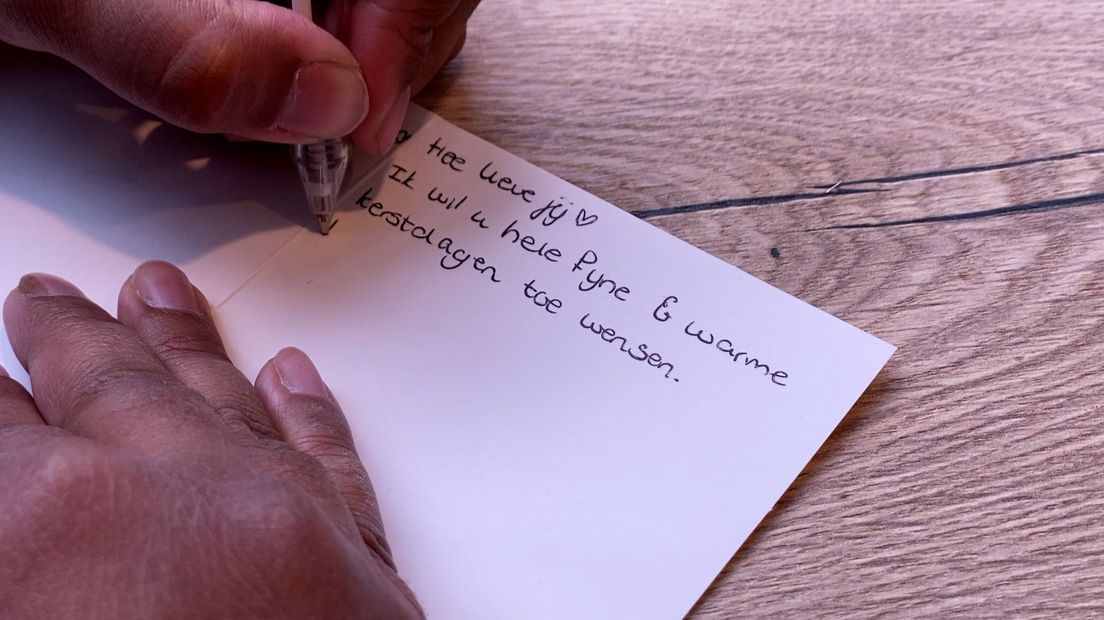 Hoe lieve jij ♡
Ik wil u hele fijne & warme
kerstdagen toe wensen.